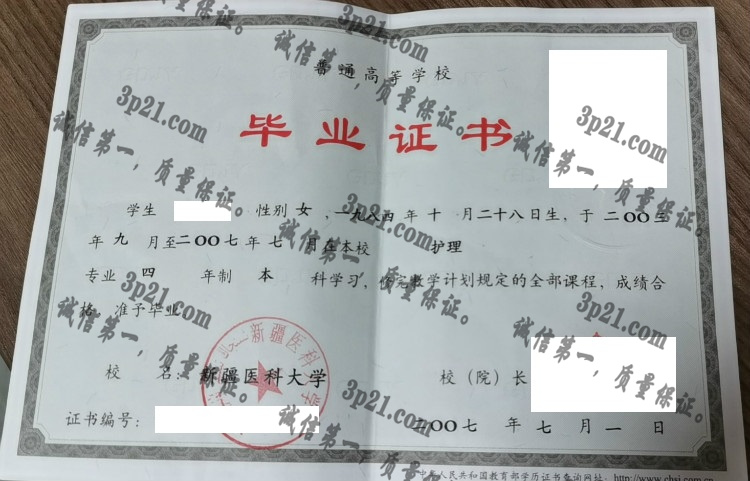 普通高等学校
毕业证书
学生 性别 女 ,一九八四年 十 月二十八日生,于 二〇〇三
年 九 月至二〇〇七年 七 月在本校 护理
专业 四 年制 本 科学习,修完教学计划规定的全部课程,成绩合
格。准予毕业
校 名:新疆医科大学 校(院)长
证书编号: 二〇〇七 年 七 月 一 日
中华人民共和国教育部学历证书查询网址: http://www.chsi.com.cn
新疆医科
3p21.com
诚信第一,质量保证。
3p21.com
诚信第一,质量保证。
3p21.com
诚信第一,质量保证。
3p21.com
诚信第一,质量保证。
3p21.com
诚信第一,质量保证。
3p21.com
诚信第一,质量保证。
3p21.com
诚信第一,质量保证。
3p21.com
诚信第一,质量保证。